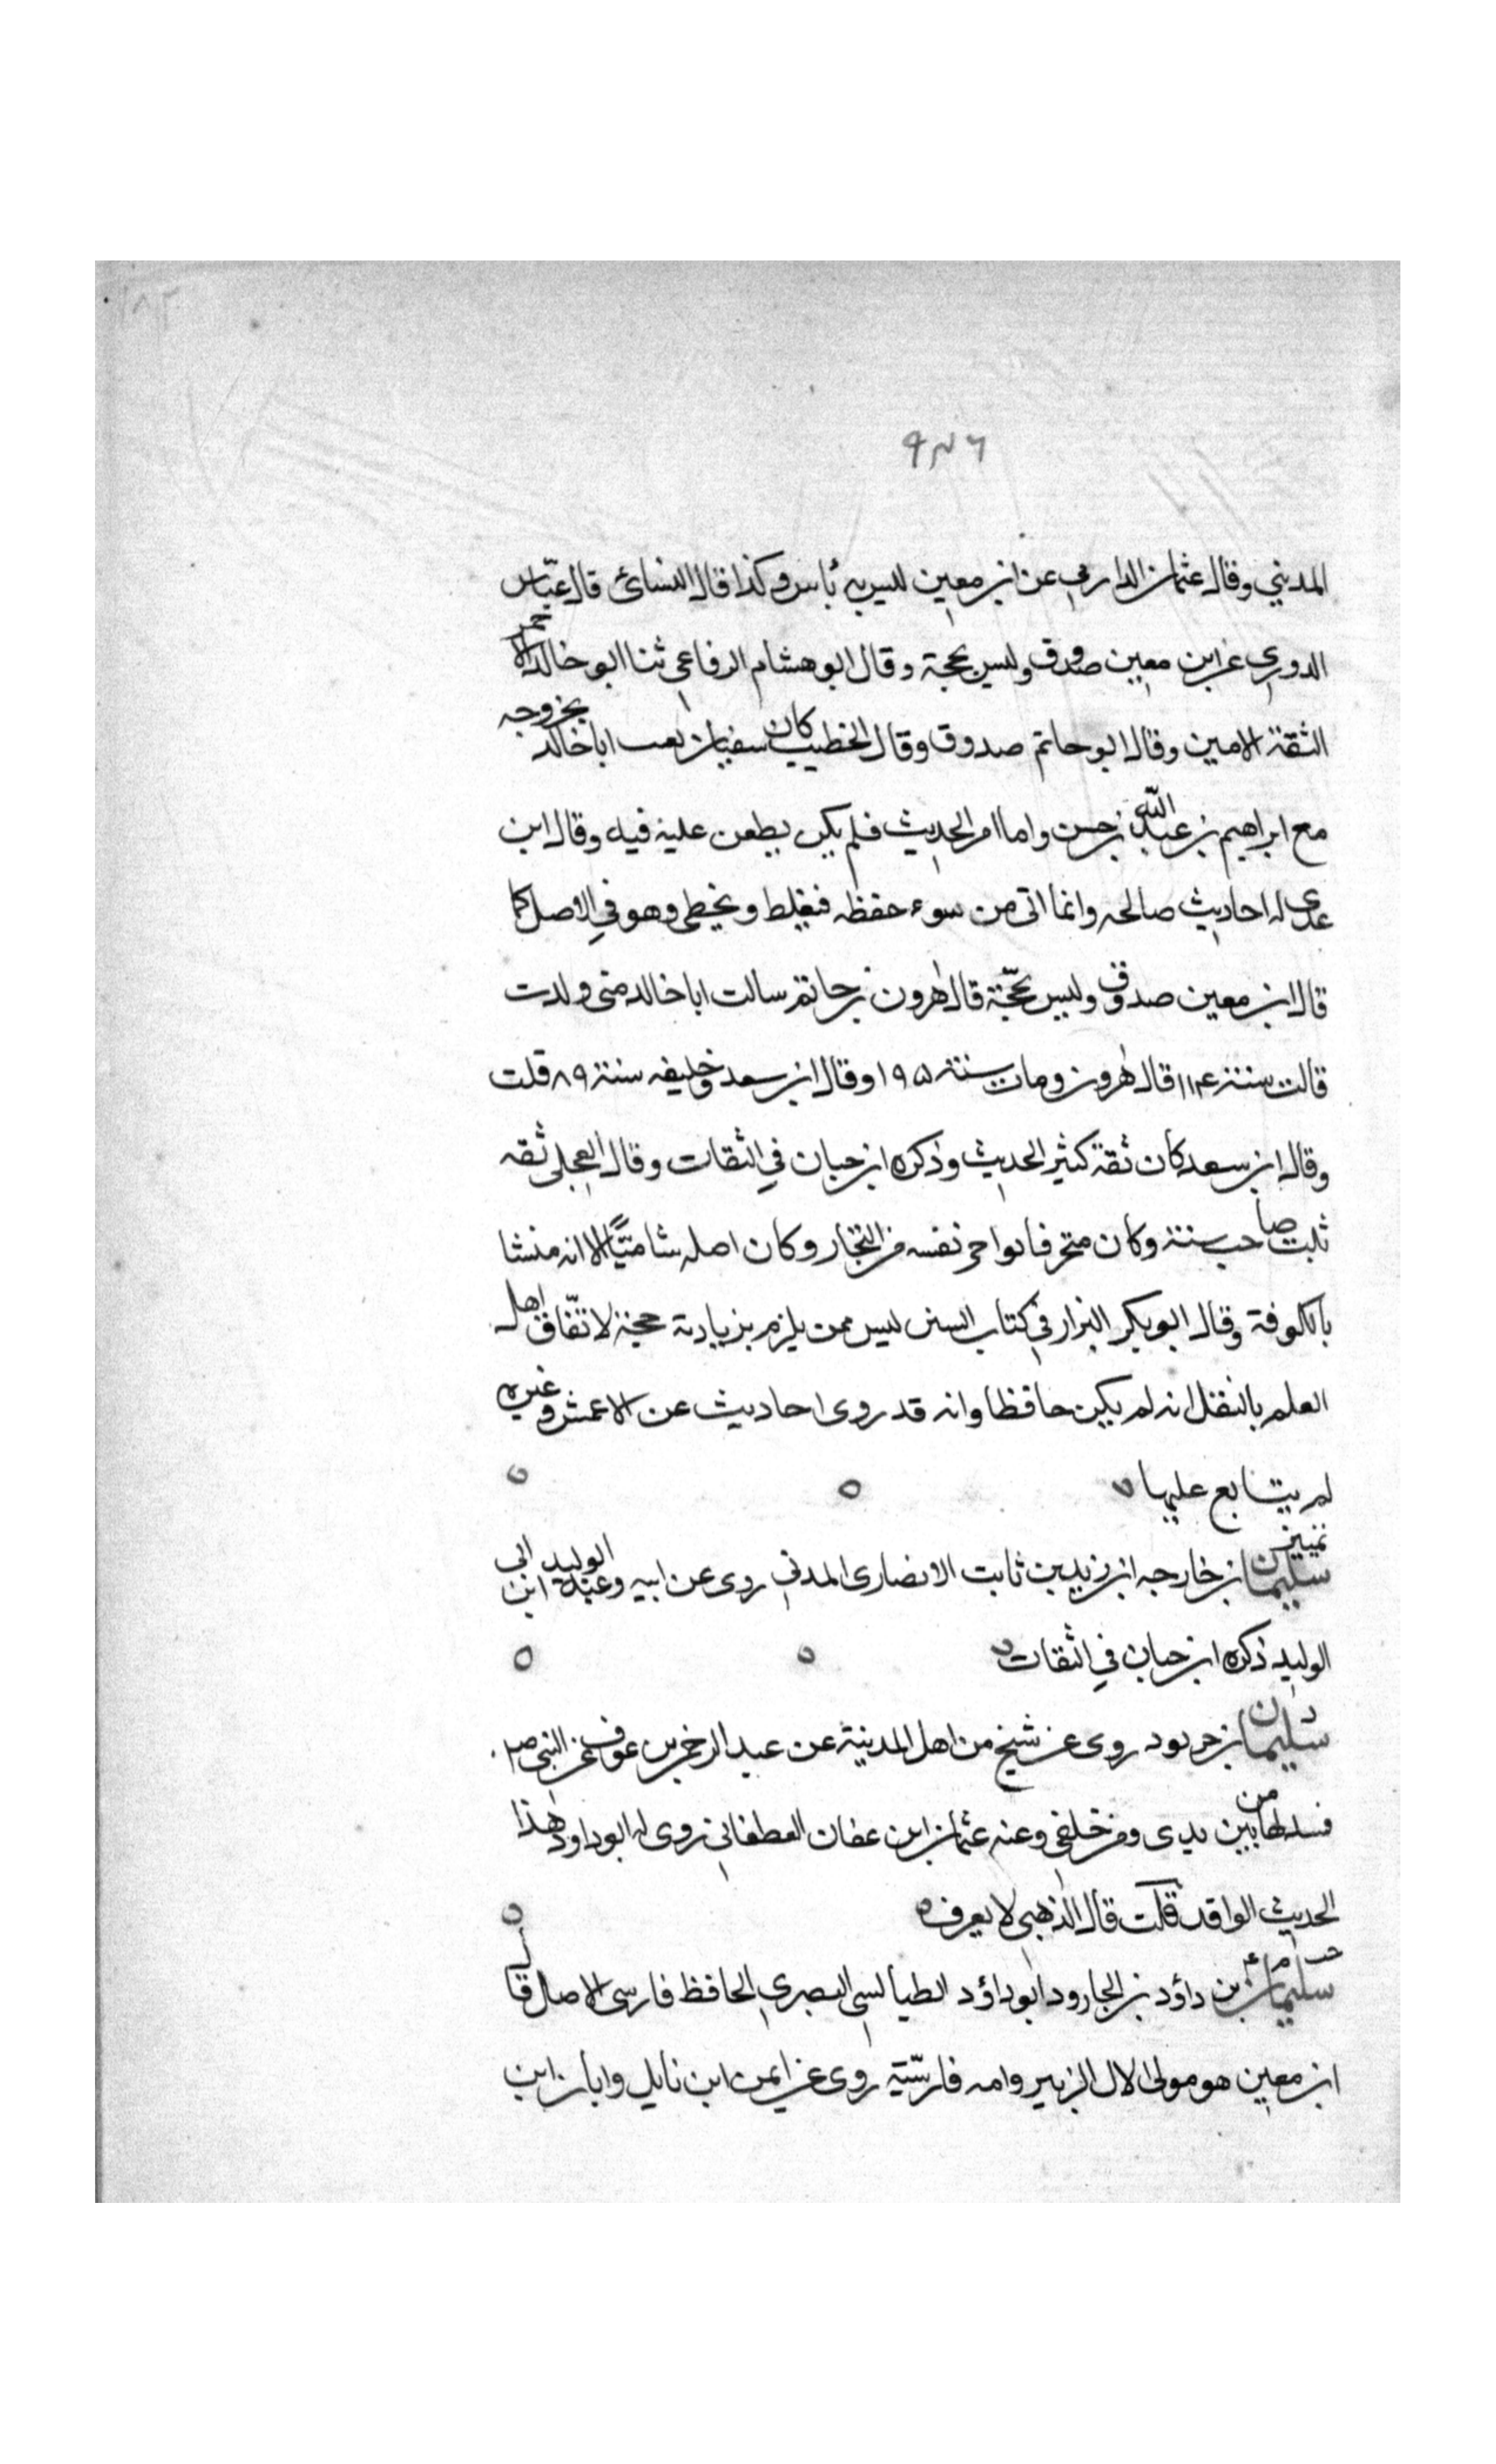 ٩٣٦
المديني وقال عثمان الدارمي عن ابن معين ليس به بأس وكذا قال النسائ قال عبّاس
الدوري عن ابن معين صدوق وليس بحجة وقال ابو هشام الرفاعى ثنا ابو خالد الاحمر
الثقة الامين وقال ابو حاتم صدوق وقال الخطيب كان سفيان يعيب ابا خالد بخروجه
مع ابراهيم بن عبد الله بن حسن واما امر الحديث فلم يكن يطعن عليه فيه وقال ابن
عدى له احاديث صالحه وانما اتى من سوء حفظه فيغلط ويخطى وهو في الاصل كما
قال ابن معين صدوق وليس بحجّة قال هرون بن حاتم سالت ابا خالد متى ولدت
قالت سنة ١١٤ قال هرون ومات سنة ١٩٥ وقال ابن سعد وخليفه سنة ٨٩ قلت
وقال ابن سعد كان ثقة كثير الحديث وذكره ابن حبان في الثقات وقال العجلى ثقه
ثبت صاحب سنة وكان متحرفا يواجر نفسه من التجار وكان اصله شاميًّا الا انه منشا
بالكوفة وقال ابو بكر البزار في كتاب السنن ليس ممن يلزم بزيادته حجة لاتّفاق اهل
العلم بالنقل انه لم يكن حافظا وانه قد روى احاديث عن الاعمش وغيره
لم يتابع عليها ه ه ه
تمييز سليمان بن خارجه ابن زيد بن ثابت الانصارى المدني روى عن ابيه وعنه الوليد ابن ابى
الوليد ذكره ابن حبان في الثقات ه ه ه
د سليمان بن خربود روى عن شيخ من اهل المدينة عن عبد الرحمن بن عوف عن النبي صم
فسدلها من بين يدى ومن خلفى وعنه عثمان ابن عفان الغطفاني روى له ابو داود هذا
الحديث الواقد قلت قال الذهبى لا يعرف ه ه
خت م ٤ سليمان بن داؤد بن الجارود ابو داؤد الطيالسى البصري الحافظ فارسى الاصل قال
ابن معين هو مولى لال الزبير وامه فارسّية روى عن ايمن ابن نايل وابان ابن